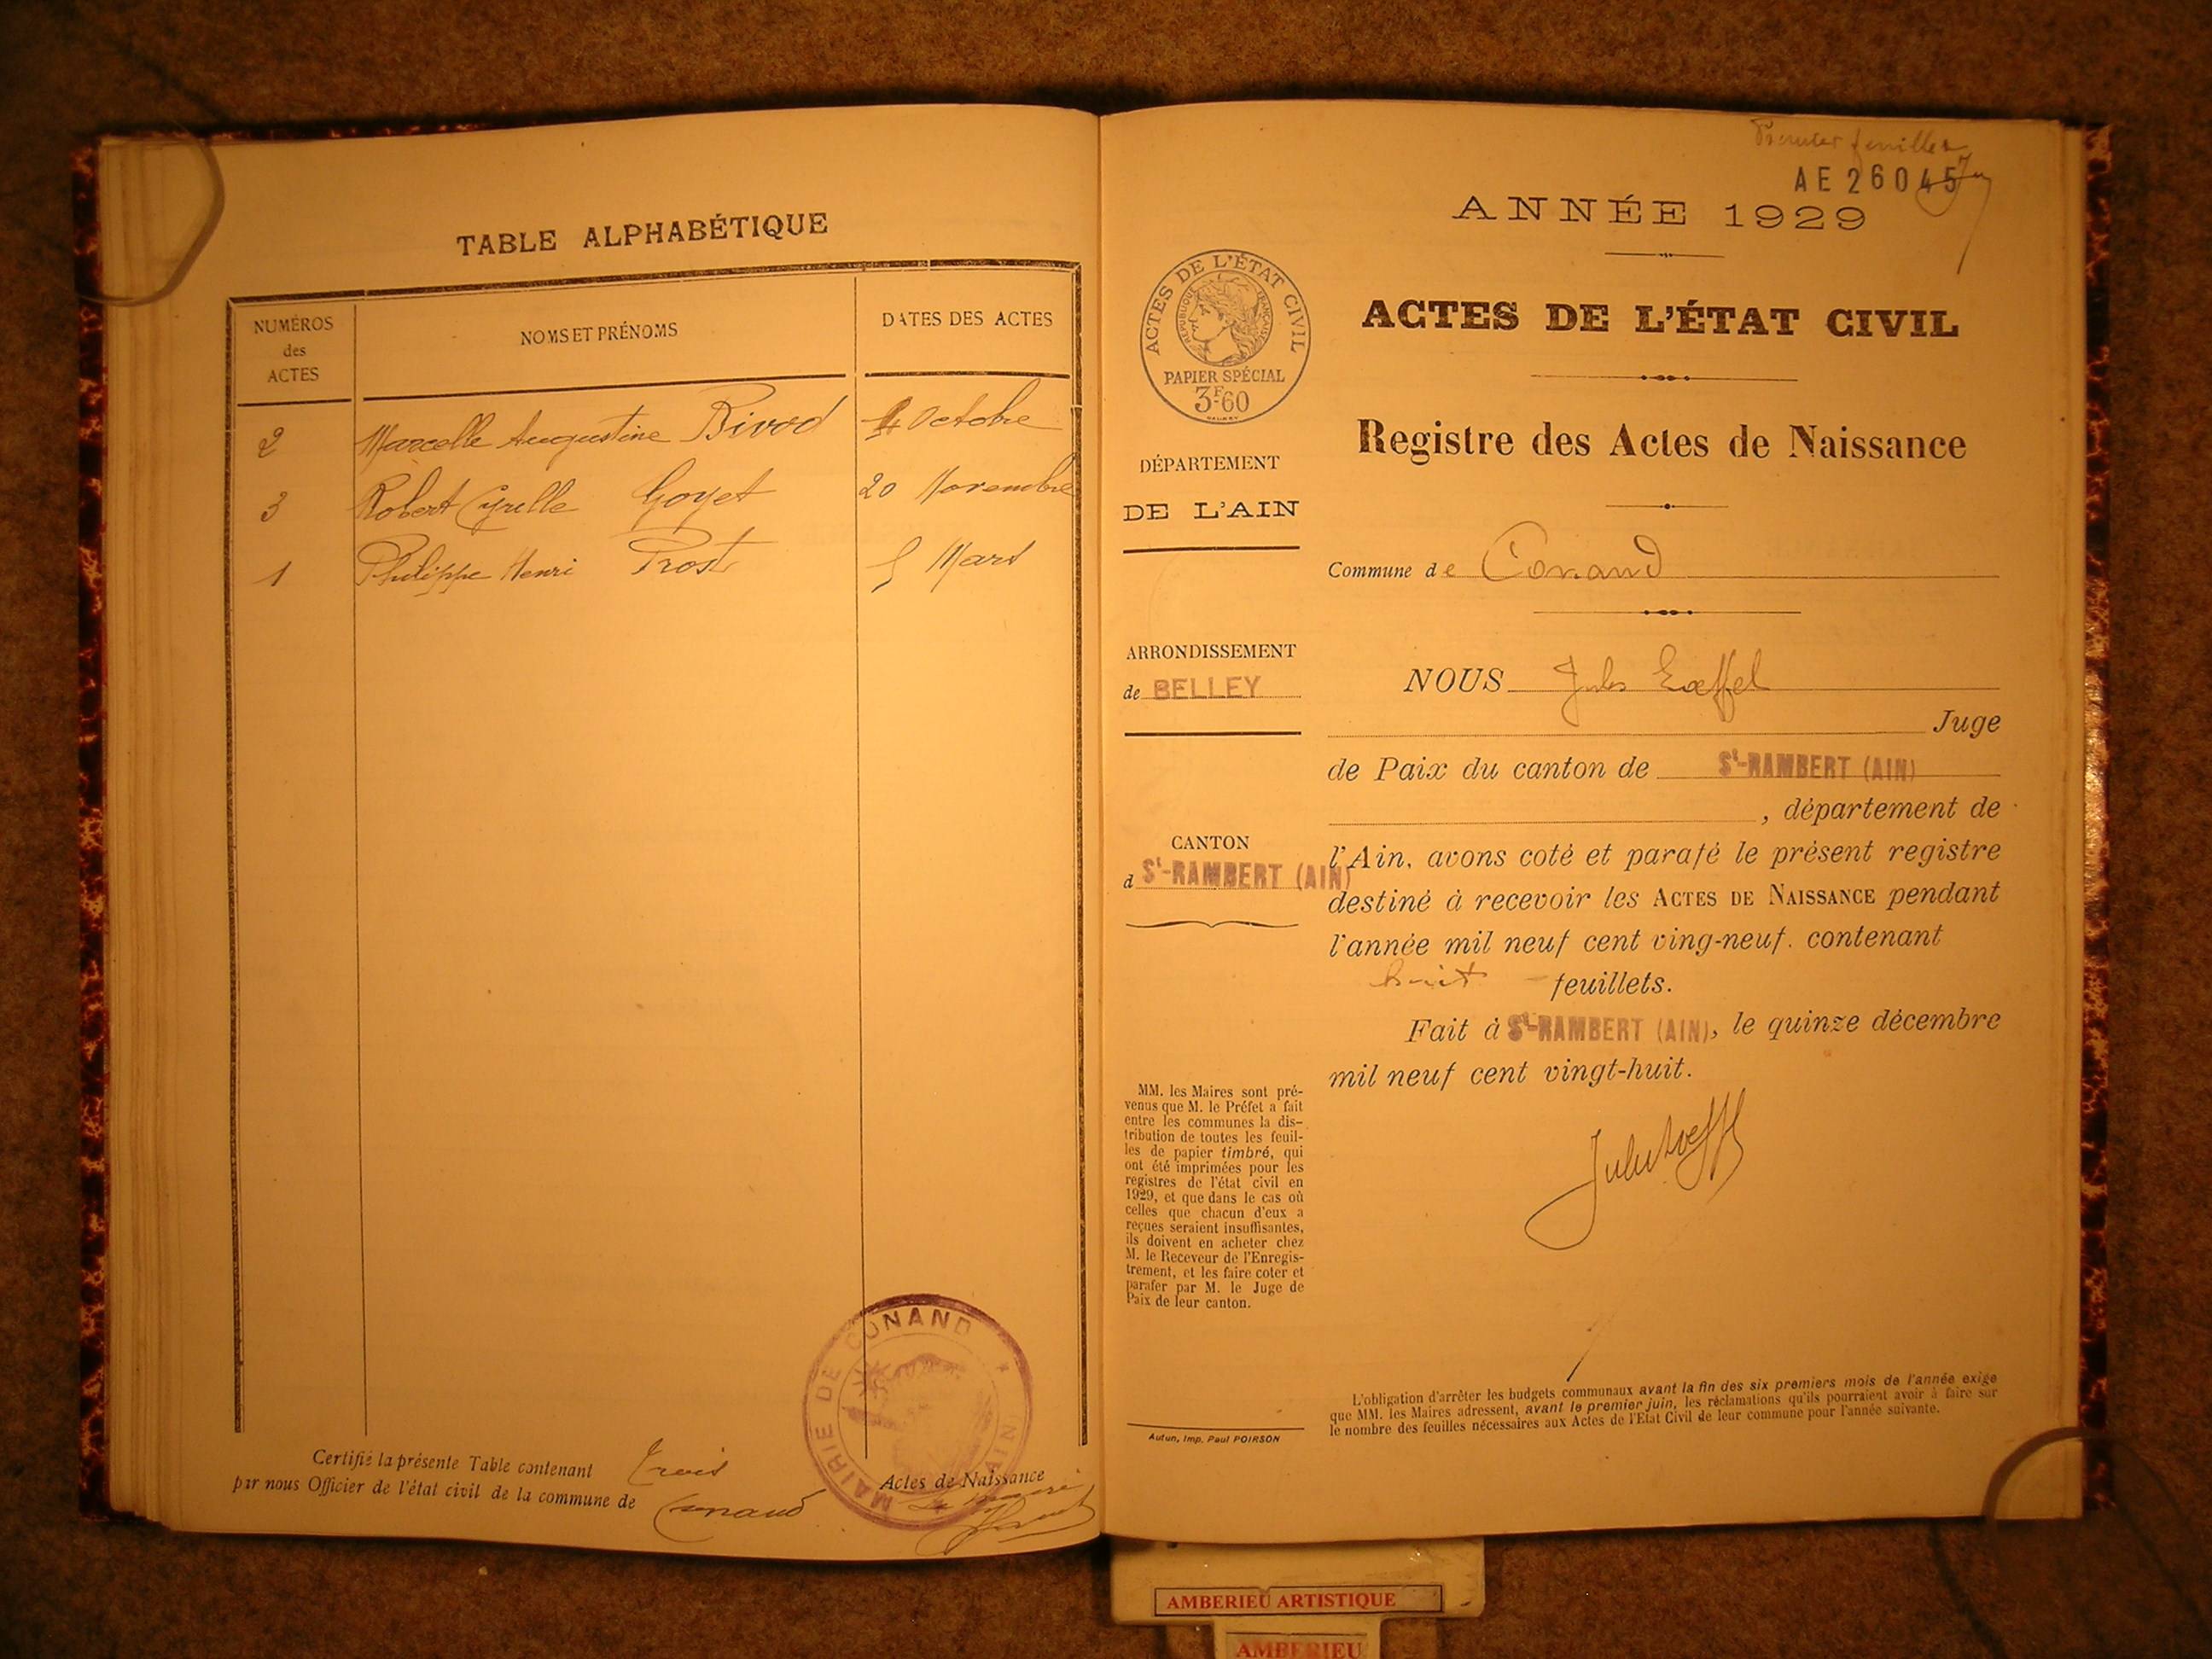 TABLE ALPHABÉTIQUE
NUMÉROS
des
ACTES
NOMS ET PRÉNOMS
DATES DES ACTES
2 Marcelle Augustine Bivod 4 Octobre
3 Robert Cyrille Goyet 20 Novembre
1 Philippe Henri Prost 5 Mars
Certifié la présente Table contenant trois Actes de Naissance
par nous Officier de l'état civil de la commune de Conand
MAIRIE DE CONAND
AIN
Premier feuillet
AE 26045
ANNÉE 1929
ACTES DE L'ÉTAT CIVIL
RÉPUBLIQUE FRANÇAISE
PAPIER SPÉCIAL
3F.60
ACTES DE L'ÉTAT CIVIL
Registre des Actes de Naissance
DÉPARTEMENT
DE L'AIN
Commune de Conand
ARRONDISSEMENT
de BELLEY
NOUS Jules
Juge
de Paix du canton de St-RAMBERT (AIN)
, département de
CANTON
d St-RAMBERT (AIN)
l'Ain, avons coté et parafé le présent registre
destiné à recevoir les ACTES DE NAISSANCE pendant
l'année mil neuf cent ving-neuf. contenant
huit feuillets.
Fait à St-RAMBERT (AIN), le quinze décembre
mil neuf cent vingt-huit.
MM. les Maires sont pré-
venus que M. le Préfet a fait
entre les communes la dis-
tribution de toutes les feuil-
les de papier timbré, qui
ont été imprimées pour les
registres de l'état civil en
1929, et que dans le cas où
celles que chacun d'eux a
reçues seraient insuffisantes,
ils doivent en acheter chez
M. le Receveur de l'Enregis-
trement, et les faire coter et
parafer par M. le Juge de
Paix de leur canton.
Autun, Imp. Paul POIRSON
L'obligation d'arrêter les budgets communaux avant la fin des six premiers mois de l'année exige
que MM. les Maires adressent, avant le premier juin, les réclamations qu'ils pourraient avoir à faire sur
le nombre des feuilles nécessaires aux Actes de l'Etat Civil de leur commune pour l'année suivante.
AMBERIEU ARTISTIQUE
AMBERIEU